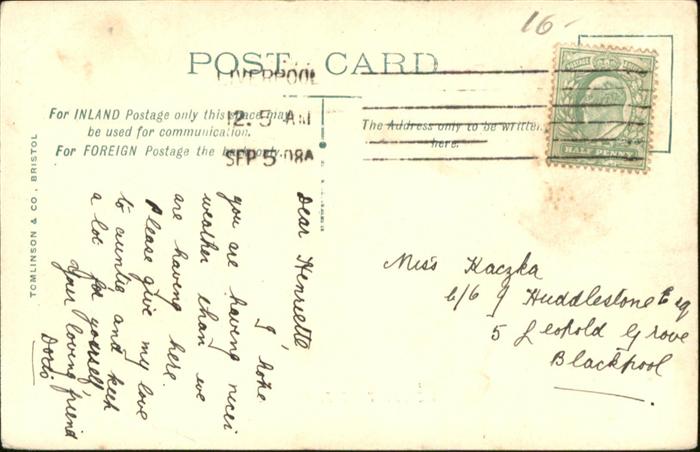 16-
POST CARD
LIVERPOOL
12.5 AM
SEP 5 08A
For INLAND Postage only this space may
be used for communication.
For FOREIGN Postage the back only.
The Address only to be written
here.
HALF PENNY
TOMLINSON & CO. BRISTOL
Dear Henriette,
I hope
you are having nicer
weather than we
are having here.
Please give my love
to auntie and keep
a lot for yourself,
Your loving friend
Doris
Miss Kaczka
c/o J Huddlestone Esq
5 Leopold Grove
Blackpool